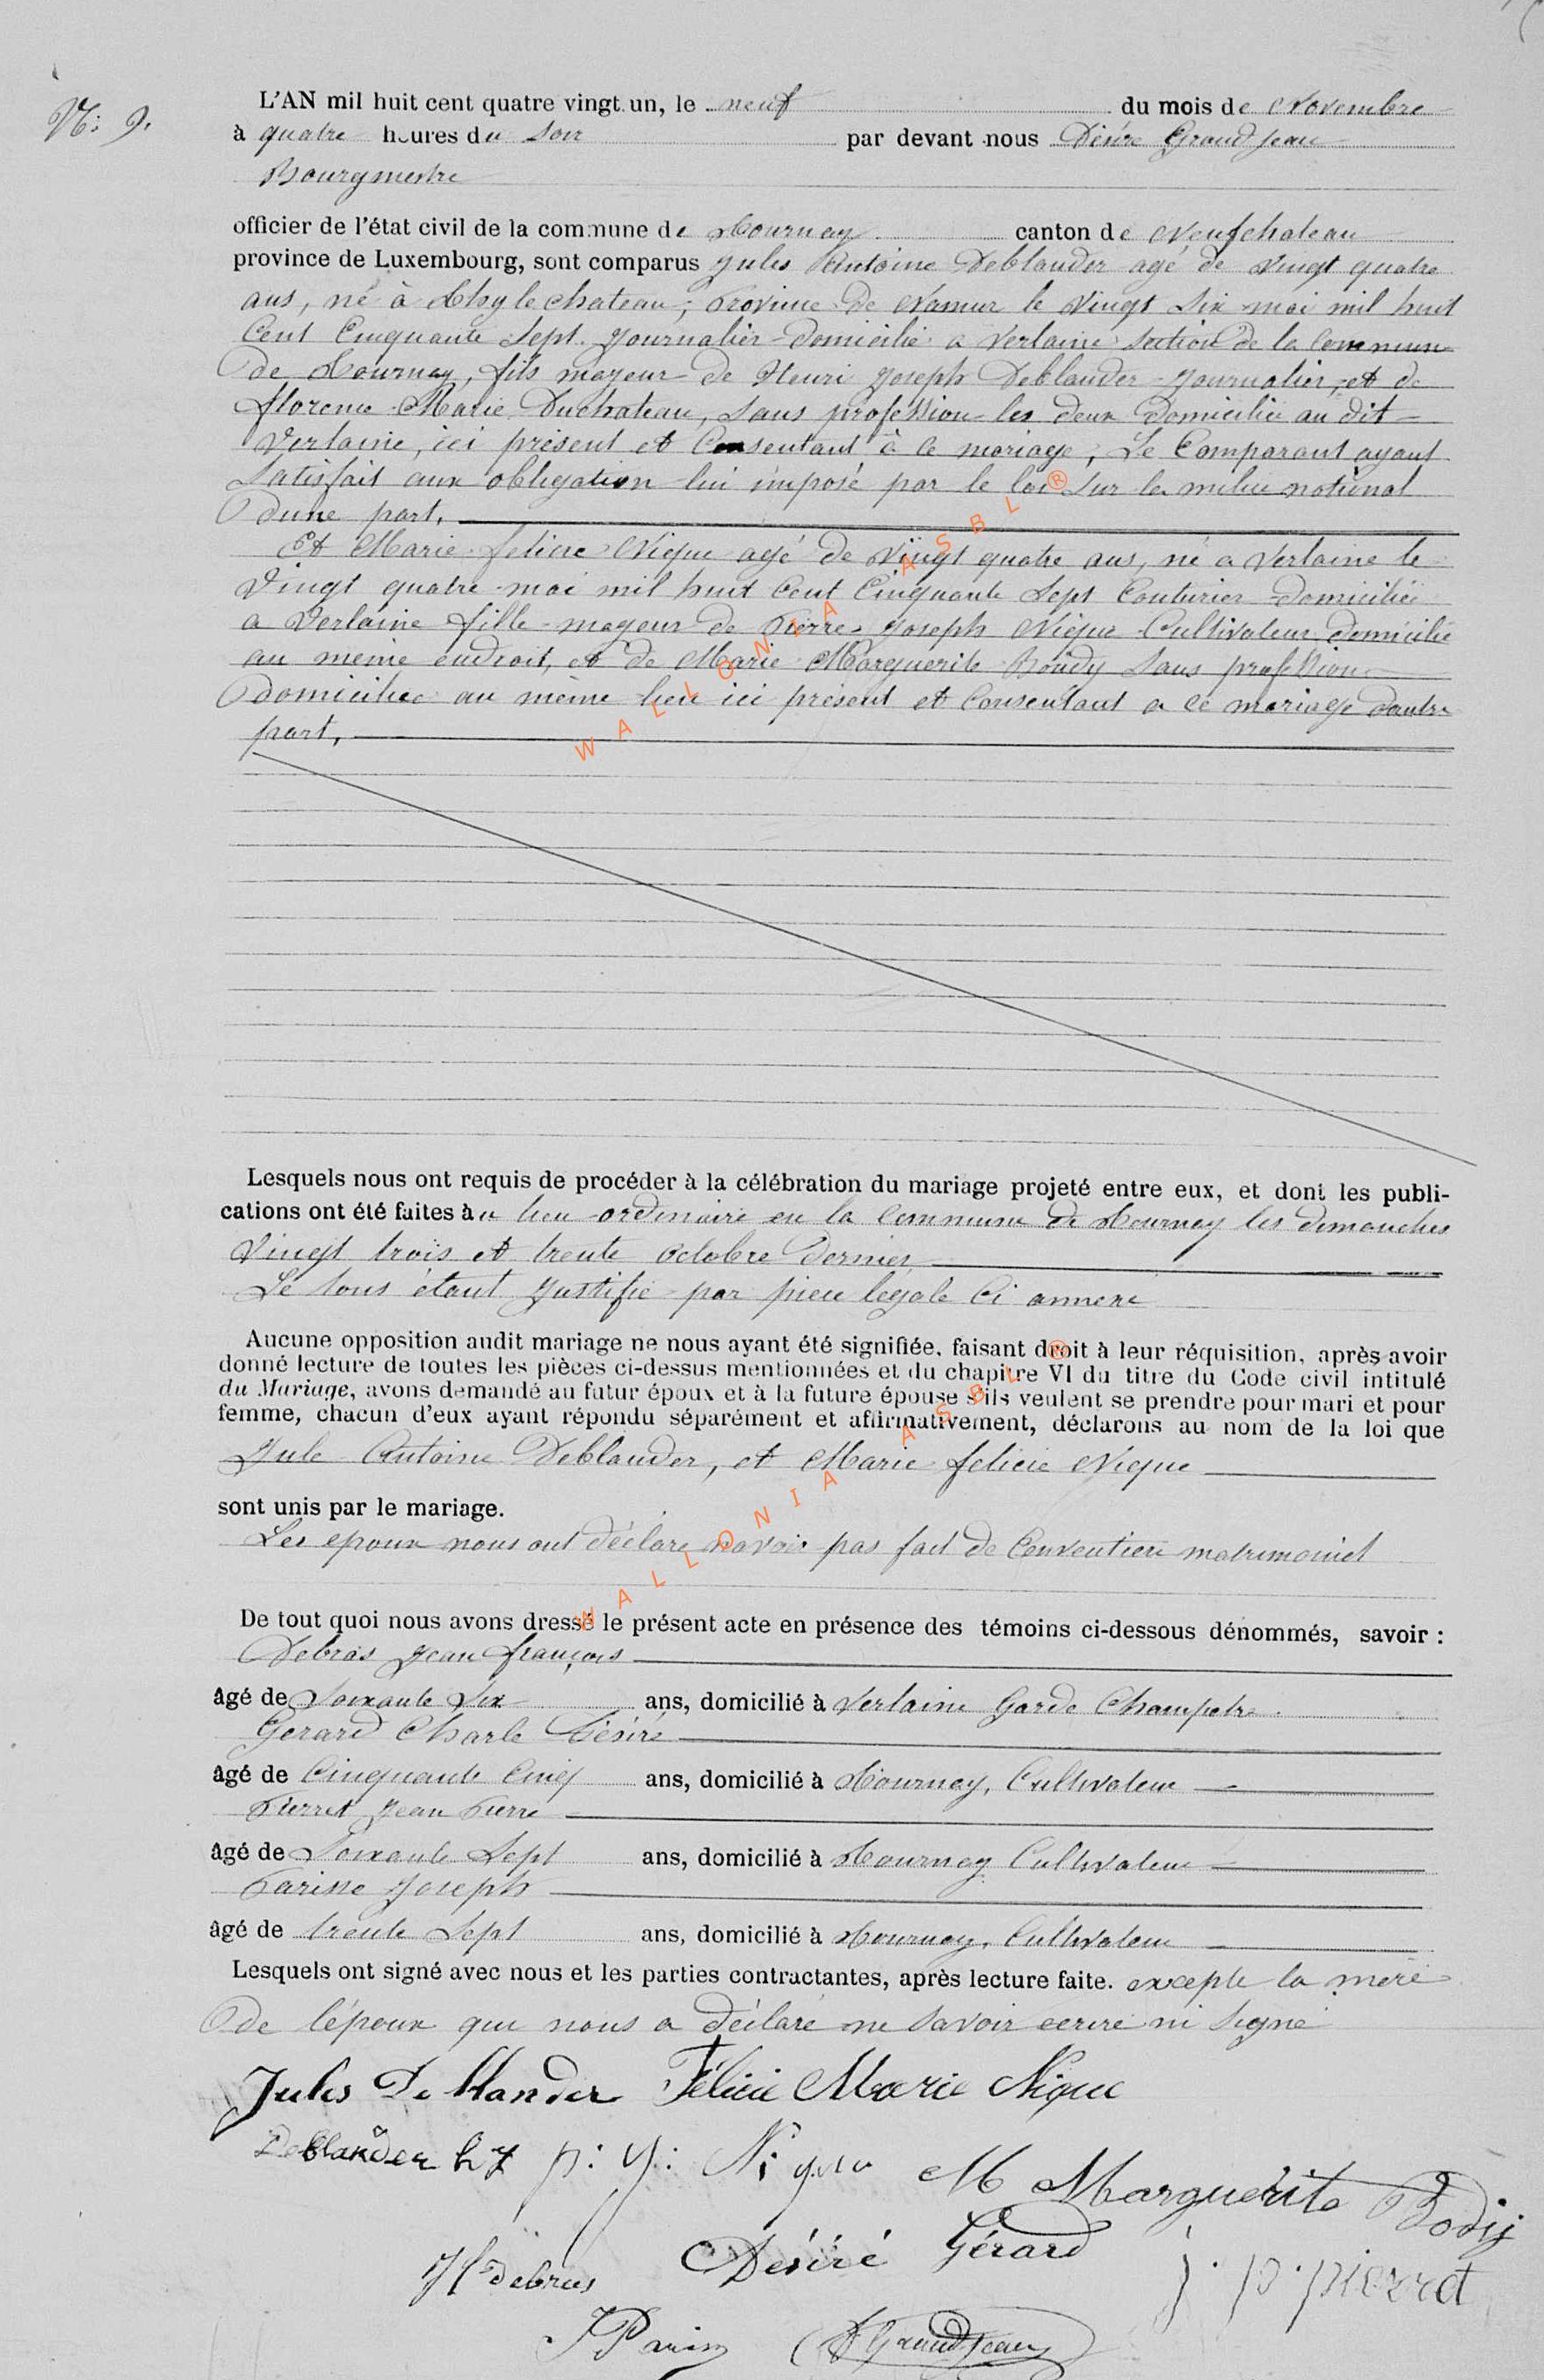 N: 9.
L'AN mil huit cent quatre vingt un, le neuf du mois de Novembre
à quatre heures du soir par devant nous Désiré Grandjean
Bourgmestre
officier de l'état civil de la commune de Tournay canton de Neufchateau
province de Luxembourg, sont comparus Jules Antoine Deblander agé de vingt quatre
ans, né à Thy le chateau, Province de Namur le vingt six mai mil huit
Cent Cinquante Sept. Journalier domicilié a Verlaine section de la Commune
de Tournay, fils mageur de Henri Joseph Deblander Journalier, et de
florence Marie Duchateau, sans profession les deux domicilié au dit
Verlaine, ici présent et Consentant à ce mariage, Le Comparant ayant
Satisfait aux obligation lui imposé par le loi sur la milice national
dune part,
Et Marie felicie Nique agé de vingt quatre ans, né a Verlaine le
Vingt quatre mai mil huit Cent Cinquante Sept Couturier domiciliée
a Verlaine fille mageur de Pierre Joseph Nique Cultivateur domicilié
au meme endroit, et de Marie Marguerite Body Sans profession
domiciliée au même lieu ici présent et Consentant a ce mariage dautre
part,
WALLONIA ASBL ®
Lesquels nous ont requis de procéder à la célébration du mariage projeté entre eux, et dont les publi-
cations ont été faites au lieu ordinaire en la Commune de Tournay les dimanches
Vingt trois et trente octobre dernier
Le tous étant Justifié par piece légale Ci annexe
Aucune opposition audit mariage ne nous ayant été signifiée, faisant droit à leur réquisition, après avoir
donné lecture de toutes les pièces ci-dessus mentionnées et du chapitre VI du titre du Code civil intitulé
du Mariage, avons demandé au futur époux et à la future épouse s'ils veulent se prendre pour mari et pour
femme, chacun d'eux ayant répondu séparément et affirmativement, déclarons au nom de la loi que
Jule Antoine Deblander, et Marie felicie Nique
sont unis par le mariage.
Les epoux nous ont déclare navoir pas fait de Convention matrimoniel
WALLONIA ASBL ®
De tout quoi nous avons dressé le présent acte en présence des témoins ci-dessous dénommés, savoir :
Debras Jean françois
âgé de Soixante Six ans, domicilié à Verlaine Garde Champetre
Gerard Charle Désiré
âgé de Cinquante Cinq ans, domicilié à Tournay, Cultivateur
Pierret Jean Pierre
âgé de Soixante Sept ans, domicilié à Tournay Cultivateur
Parisse Joseph
âgé de trente Sept ans, domicilié à Tournay, Cultivateur
Lesquels ont signé avec nous et les parties contractantes, après lecture faite. excepte la mere
de lépoux qui nous a déclaré ne savoir ecrire ni signé
Jules Deblander Félicie Marie Nique
Deblander h J p: j: Nique M Marguerite Body
J f debras Désiré Gérard j. p. pierret
J Paris D Grandjean